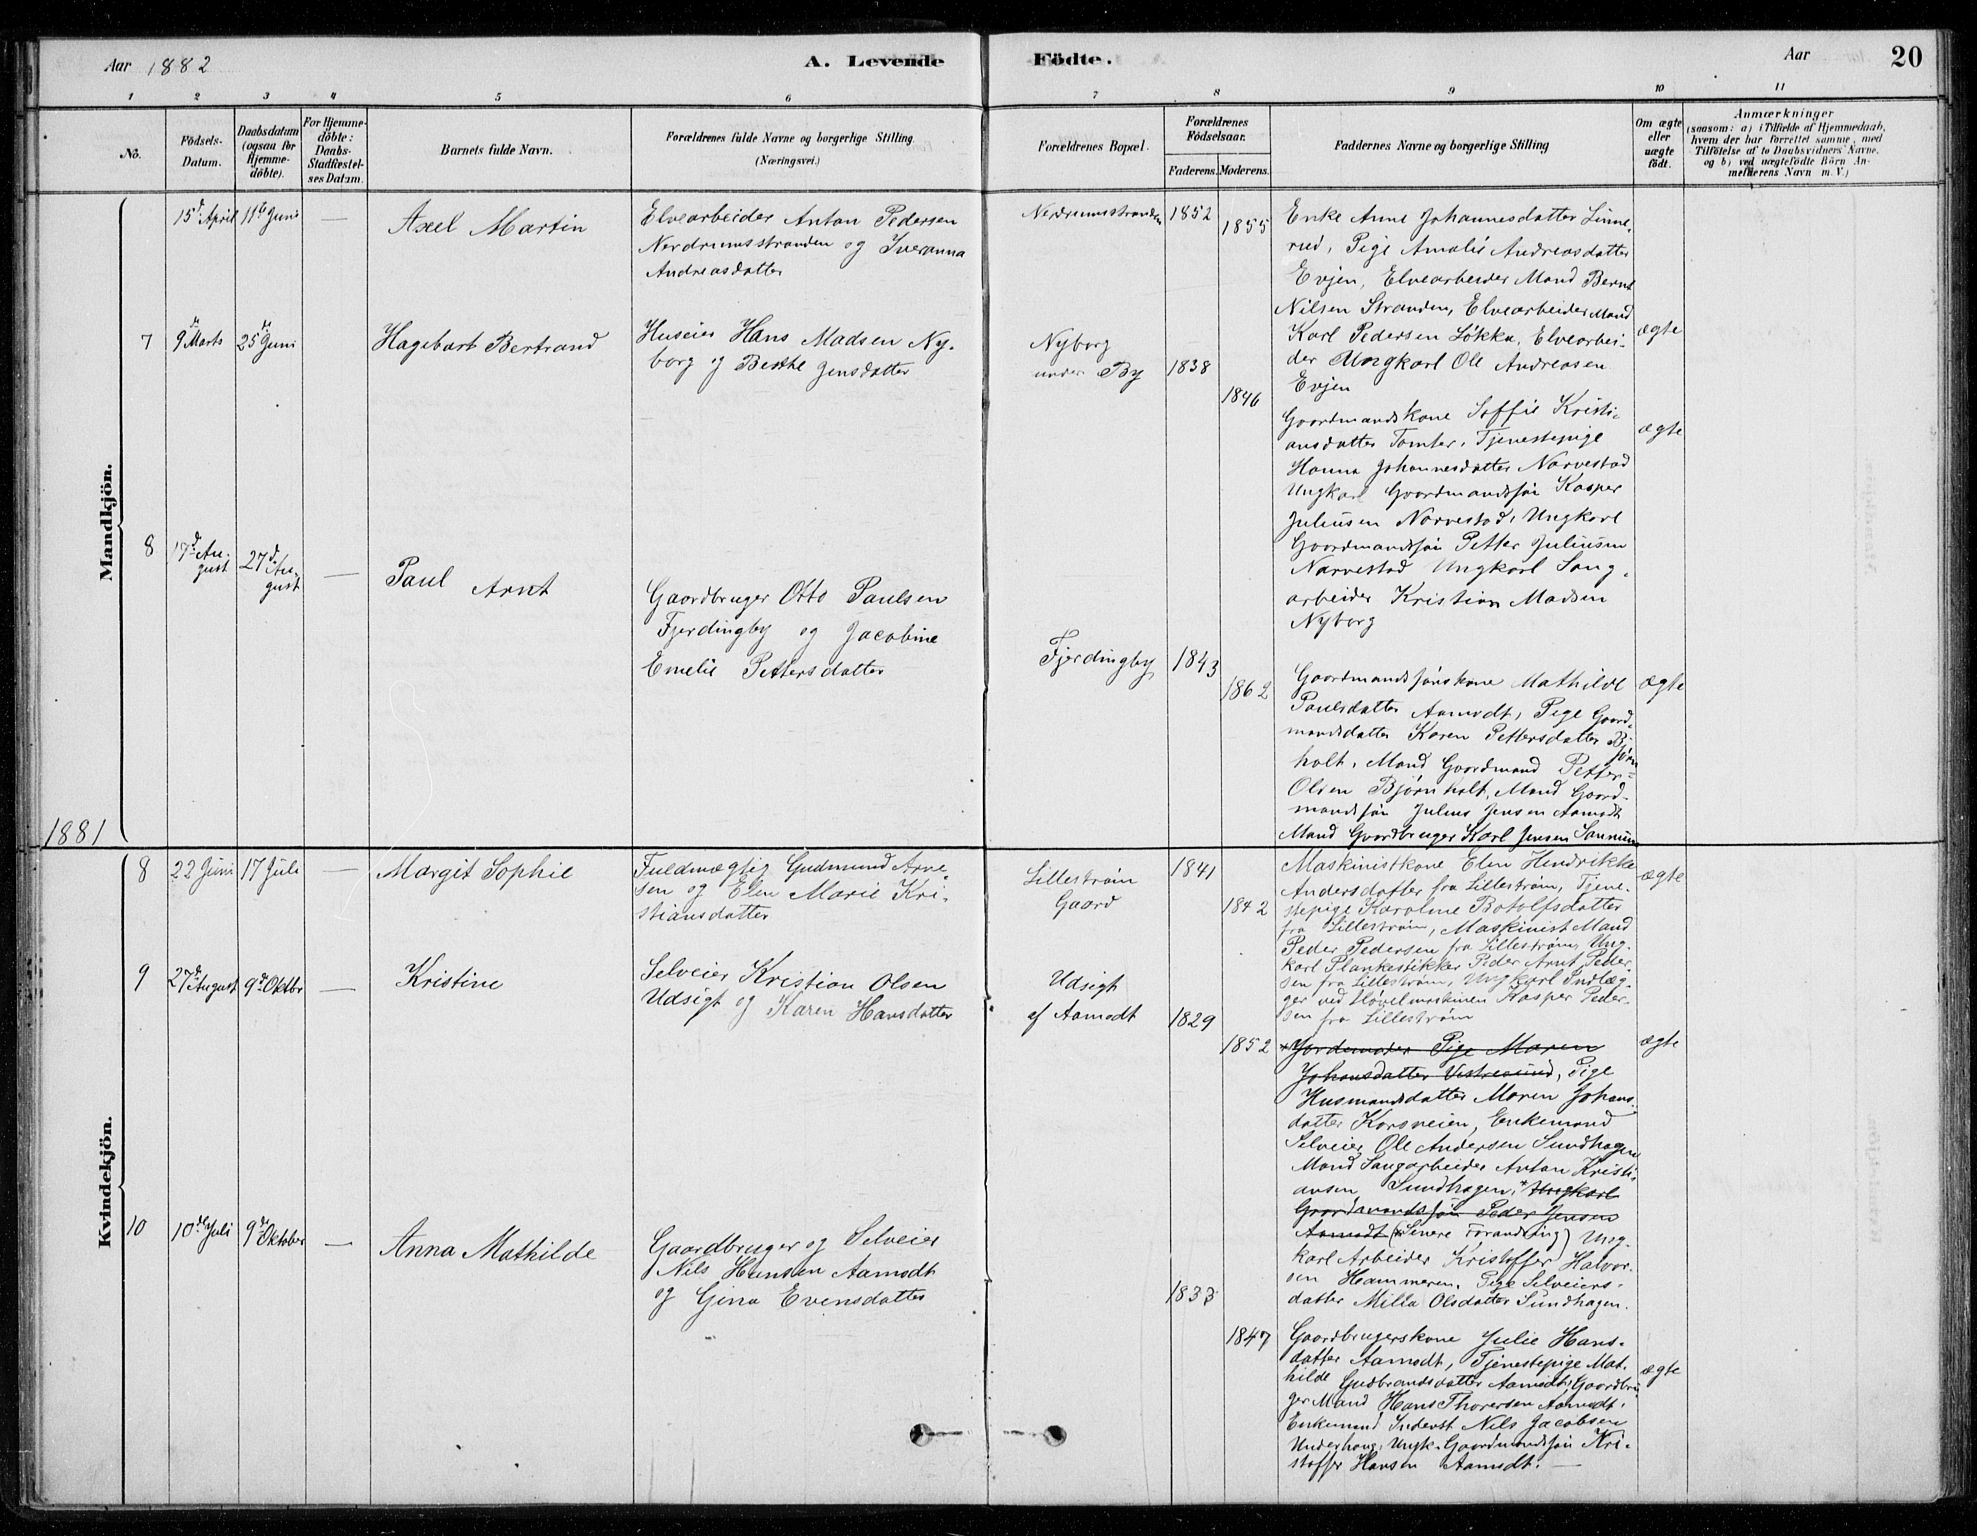 Aar 1882
A. Levende Födte.
Aar
20
1 2 3 4 5 6 7 8 9 10 11
No.
Födsels-
Datum.
Daabsdatum
(ogsaa for
Hjemme-
döbte).
For Hjemme-
döbte:
Daabs-
Stadfæstel-
ses Datum.
Barnets fulde Navn.
Forældrenes fulde Navne og borgerlige Stilling.
(Næringsvei.)
Forældrenes Bopæl.
Forældrenes
Födselsaar.
Faderens. Moderens.
Faddernes Navne og borgerlige Stilling
Om ægte
eller
uægte
födt.
Anmærkninger
(saasom: a) i Tilfælde af Hjemmedaab,
hvem der har forrettet samme, med
Tilföielse af to Daabsvidners Navne,
og b) ved uægtefödte Börn An-
melderens Navn m. V.)
Mandkjön.
15d April 11te Juni — Axel Martin
Elvearbeider Anton Pedersen
Nerdrumsstranden og Iveranna
Andreasdatter
Nerdrumsstranden 1852
1855
Enke Anne Johannesdatter Linne-
rud, Pige Amalie Andreasdatter
Evjen, Elvearbeider Mand Bernt
Nilsen Stranden, Elvearbeider Mand
Karl Pedersen Løkka, Elvearbei-
der Ungkarl Ole Andreasen
Evjen
ægte
7 9de Marts 25de Juni Hagebart Bertrand
Huseier Hans Madsen Ny-
borg og Berthe Jensdatter
Nyborg
under By 1838
1846
Gaardmandskone Soffie Kristi-
ansdatter Tomter, Tjenestepige
Hanna Johannesdatter Narvestad
Ungkarl Gaardmandssøn Kasper
Juliusen Narvestad, Ungkarl
Gaardmandssøn Petter Juliusen
Narvestad Ungkarl Saug-
arbeider Kristian Madsen
Nyborg
ægte
8 17d Au-
gust
27d Au-
gust — Paul Arnt
Gaardbruger Otto Paulsen
Fjerdingby og Jacobine
Emelie Pettersdatter
Fjerdingby 1843
1862
Gaardmandssønskone Mathilde
Paulsdatter Aamodt, Pige Gaard-
mandsdatter Karen Pettersdatter Bjørn-
holt, Mand Gaardmand Petter
Olsen Bjørnholt, Mand Gaard-
mandssøn Julius Jensen Aamodt
Mand Gaardbruger Karl Jensen
ægte
1881
Kvindekjön.
8 22 Juni 17 Juli — Margit Sophie
Fuldmægtig Gudmund Arne-
sen og Elen Marie Kri-
stiansdatter
Lillestrøm
Gaard 1841
1842
Maskinistkone Elen Hendrikke
Andersdatter fra Lillestrøm, Tjene-
stepige Karoline Botolfsdatter
fra Lillestrøm, Maskinist Mand
Peder Pedersen fra Lillestrøm, Ung-
karl Plankestikker Peder Arnt Peder-
sen fra Lillestrøm, Ungkarl Indlæg-
ger ved Høvelmaskinen Kasper Peder-
sen fra Lillestrøm
ægte
9 27de August 9de Oktbr — Kristine
Selveier Kristian Olsen
Udsigt og Karen Hansdatter
Udsigt
af Aamodt 1829
1852
Jordemoder Pige Maren
Johansdatter Vestresund, Pige
Husmandsdatter Maren Johans-
datter Korsveien, Enkemand
Selveier Ole Andersen Sundhagen
Mand Saugarbeider Anton Kristi-
ansen Sundhagen, * Ungkarl
Gaardmandssøn Peder Jensen
Aamodt (* Senere Forandring) Ung-
karl Arbeider Kristoffer Halvor-
sen Hammeren, Pige Selveiers-
datter Milla Olsdatter Sundhagen.
ægte
10 10de Juli 9de Oktober — Anna Mathilde
Gaardbruger og Selveier
Nils Hansen Aamodt
og Gina Evensdatter
1833
1847
Gaardbrugerskone Julie Hans-
datter Aamodt, Tjenestepige Mat-
hilde Gudbrandsdatter Aamodt, Gaardbru-
ger Mand Hans Thorersen Aamodt,
Enkemand Inderst Nils Jacobsen
Underhaug, Ungk. Gaardmandssøn Kri-
stoffer Hansen Aamodt. —
ægte